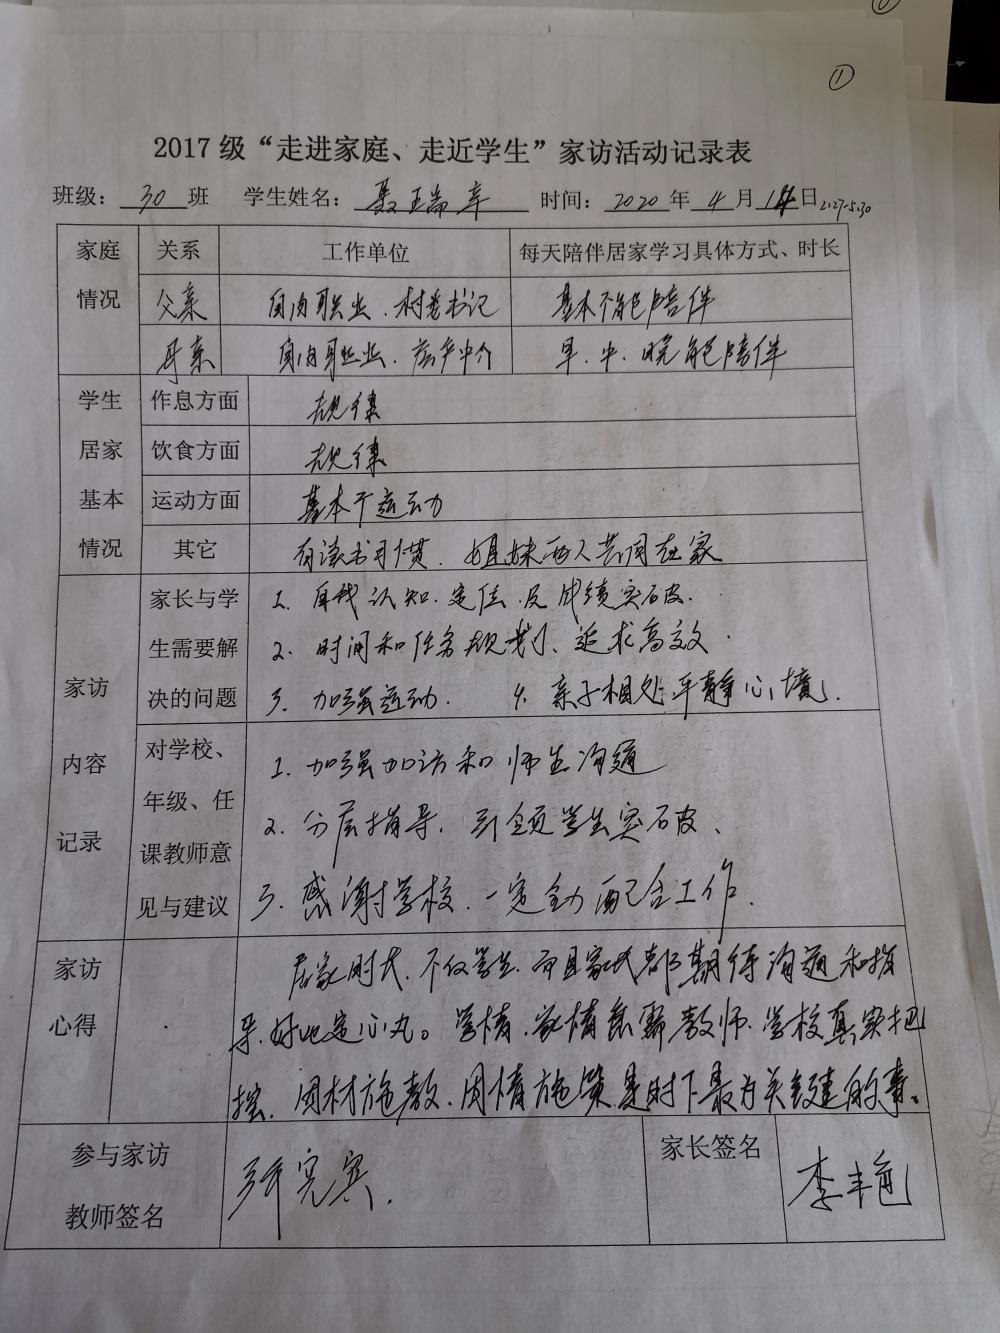 ①
2017级“走进家庭、走近学生”家访活动记录表
班级：30班 学生姓名：聂瑞 时间：2020年4月14日2:27-5:30
家庭情况 关系 工作单位 每天陪伴居家学习具体方式、时长
父亲 自由职业、村委书记 基本不能陪伴
母亲 自由职业、房产中介 早、中、晚能陪伴
学生居家基本情况 作息方面 规律
饮食方面 规律
运动方面 基本不运动
其它 有读书习惯、姐妹两人共同在家
家访内容记录 家长与学生需要解决的问题
1. 自我认知、定位、及成绩突破.
2. 时间和任务规划、追求高效.
3. 加强运动. 4. 亲子相处平静心境.
对学校、年级、任课教师意见与建议
1. 加强家访和师生沟通
2. 分层指导、引领学生突破、
3. 感谢学校、一定全力配合工作.
家访心得
居家时长、不仅学生、而且家长都期待沟通和指
导、好比定心丸。学情、家情都需教师、学校真实把
控、因材施教、因情施策是时下最为关键的事。
参与家访教师签名 家长签名 李丰艳